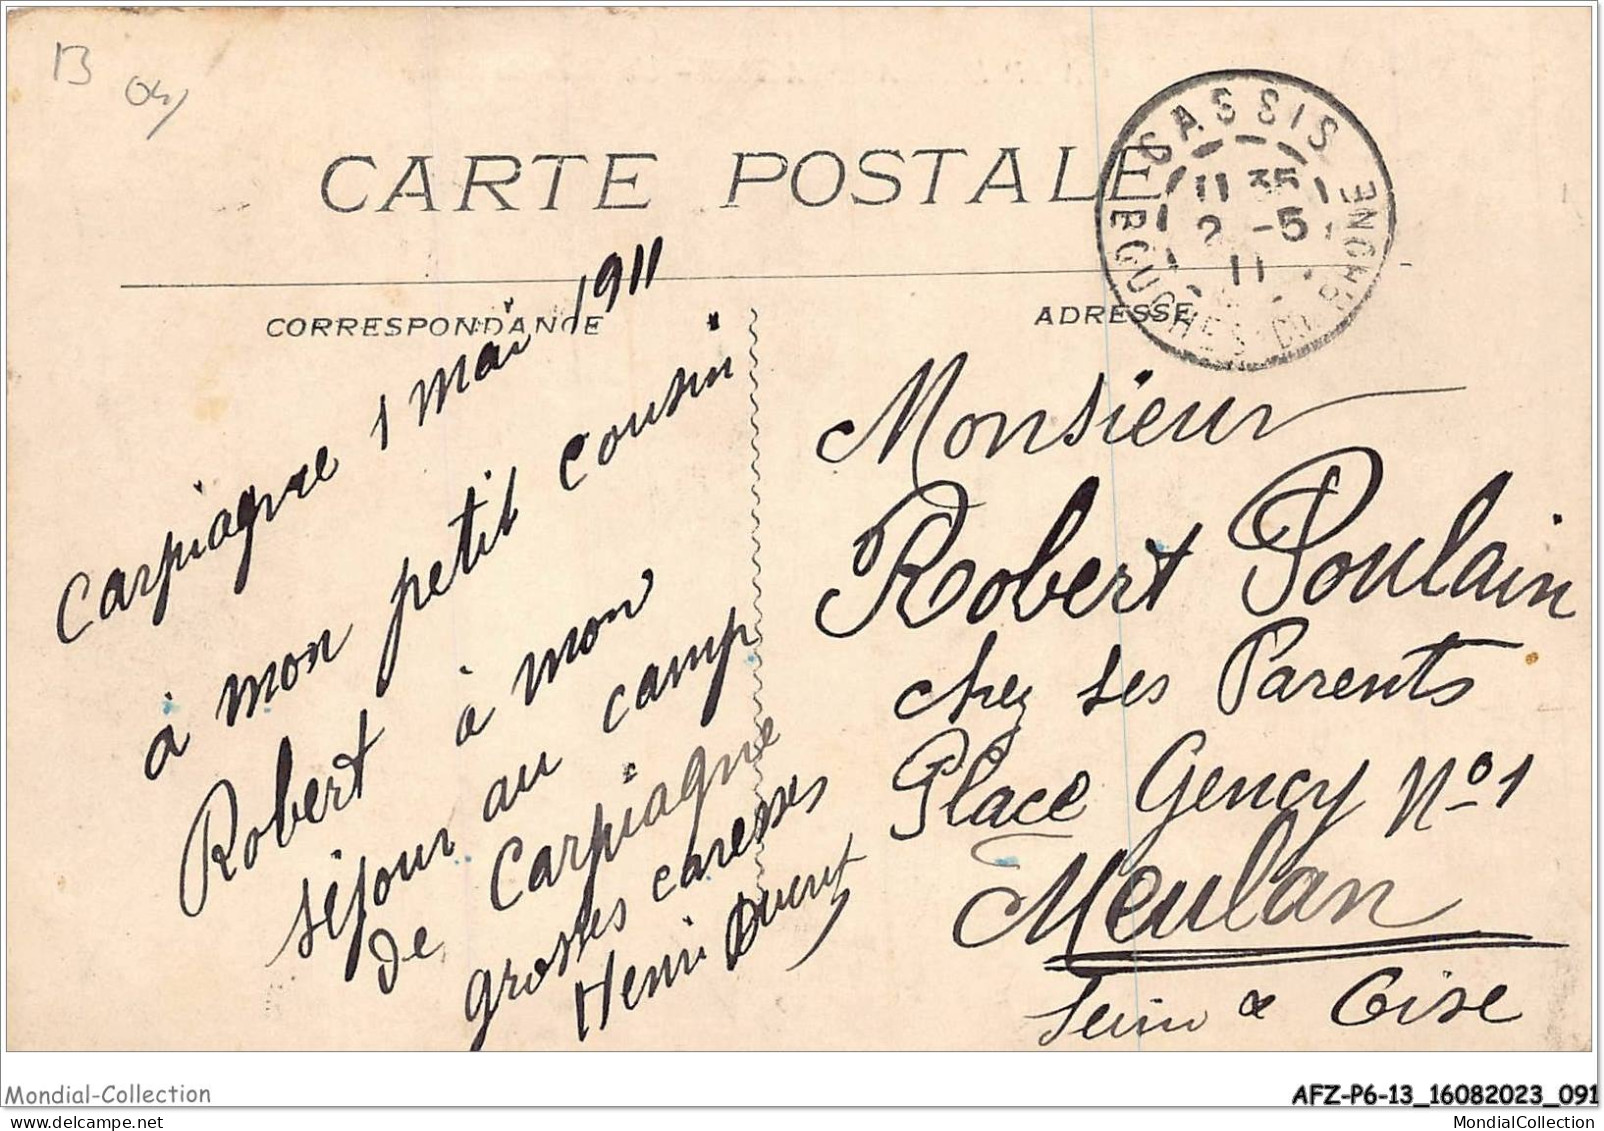 13
CARTE POSTALE
CASSIS
11 35
2 -5
11
BOUCHES-DU-RHONE
CORRESPONDANCE
ADRESSE
Carpiagne 1 mai 1911
à mon petit cousin
Robert à mon
séjour au camp
de Carpiagne
grosses caresses
Henri
Monsieur
Robert Poulain
chez ses Parents
Place Gency No 1
Meulan
Seine & Oise
Mondial-Collection
AFZ-P6-13_16082023_091
MondialCollection